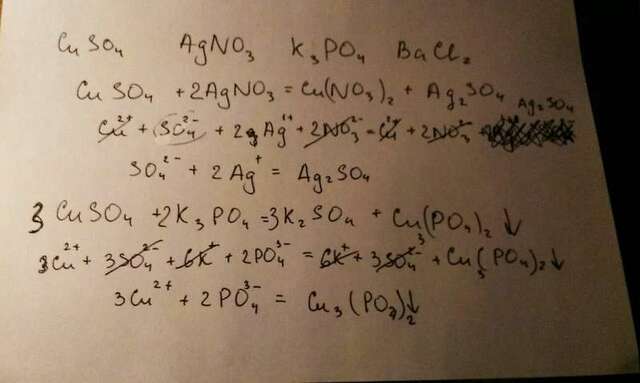 CuSO₄ AgNO₃ K₃PO₄ BaCl₂
CuSO₄ + 2AgNO₃ = Cu(NO₃)₂ + Ag₂SO₄
Cu²⁺ + SO₄²⁻ + 2Ag¹⁺ + 2NO₃²⁻ = Cu²⁺ + 2NO₃²⁻ + Ag₂SO₄
SO₄²⁻ + 2Ag⁺ = Ag₂SO₄
3CuSO₄ + 2K₃PO₄ = 3K₂SO₄ + Cu₃(PO₄)₂↓
3Cu²⁺ + 3SO₄²⁻ + 6K⁺ + 2PO₄³⁻ = 6K⁺ + 3SO₄²⁻ + Cu₃(PO₄)₂↓
3Cu²⁺ + 2PO₄³⁻ = Cu₃(PO₄)₂↓